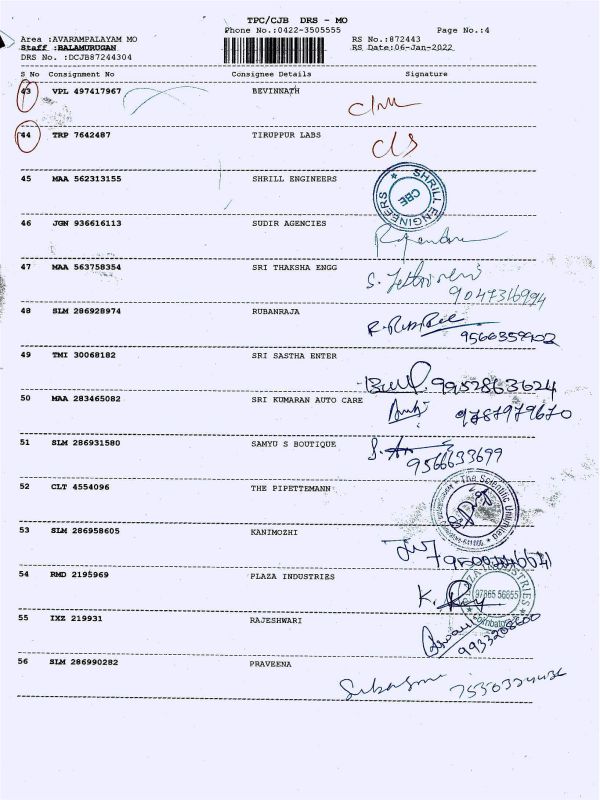 TPC/CJB DRS - MO
Phone No.:0422-3505555
Page No.:4
Area :AVARAMPALAYAM MO
RS No.:872443
Staff :BALAMURUGAN
RS Date:06-Jan-2022
DRS No. :DCJB87244304
S No Consignment No Consignee Details Signature
43 VPL 497417967 BEVINNATH
44 TRP 7642487 TIRUPPUR LABS
cls
45 MAA 562313155 SHRILL ENGINEERS
SHRILL ENGINEERS
CBE
46 JGN 936616113 SUDIR AGENCIES
47 MAA 563758354 SRI THAKSHA ENGG
9047316994
48 SLM 286928974 RUBANRAJA
9566359902
49 TMI 30068182 SRI SASTHA ENTER
9952863624
50 MAA 283465082 SRI KUMARAN AUTO CARE
9787979670
51 SLM 286931580 SAMYU S BOUTIQUE
9566633699
52 CLT 4554096 THE PIPETTEMANN
The Scientific Unlimited
53 SLM 286958605 KANIMOZHI
54 RMD 2195969 PLAZA INDUSTRIES
K.
PLAZA INDUSTRIES
97865 56855
Coimbatore
55 IXZ 219931 RAJESHWARI
9933208600
56 SLM 286990282 PRAVEENA